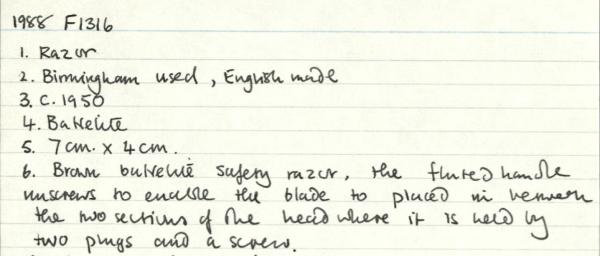 1988 F1316
1. Razor
2. Birmingham used, English made
3. c. 1950
4. Bakelite
5. 7cm. x 4cm.
6. Brown bakelite safety razor, the fluted handle
unscrews to enable the blade to placed in between
the two sections of the head where it is held by
two plugs and a screw.